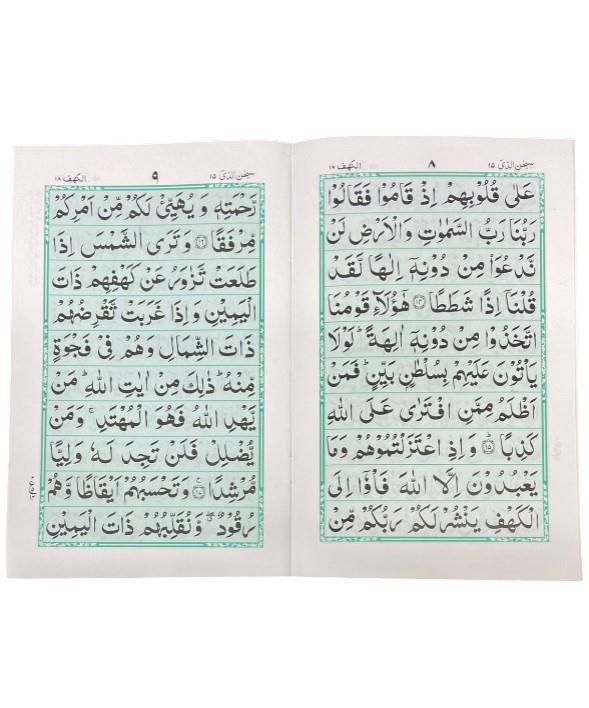 سبحٰن الذیٓ ١٥
٨
الکهف ١٨
عَلٰى قُلُوْبِهِمْ اِذْ قَامُوْا فَقَالُوْا
رَبُّنَا رَبُّ السَّمٰوٰتِ وَالْاَرْضِ لَنْ
نَّدْعُوَا۟ مِنْ دُوْنِهٖۤ اِلٰهًا لَّقَدْ
قُلْنَاۤ اِذًا شَطَطًا ۝١٤ هٰۤؤُلَآءِ قَوْمُنَا
اتَّخَذُوْا مِنْ دُوْنِهٖۤ اٰلِهَةً ؕ لَوْلَا
يَاْتُوْنَ عَلَيْهِمْ بِسُلْطٰنٍۭ بَيِّنٍ ؕ فَمَنْ
اَظْلَمُ مِمَّنِ افْتَرٰى عَلَى اللّٰهِ
كَذِبًا ۝١٥ؕ وَاِذِ اعْتَزَلْتُمُوْهُمْ وَمَا
يَعْبُدُوْنَ اِلَّا اللّٰهَ فَاْوٗۤا اِلَى
الْكَهْفِ يَنْشُرْ لَكُمْ رَبُّكُمْ مِّنْ
سبحٰن الذیٓ ١٥
٩
الکهف ١٨
رَّحْمَتِهٖ وَ يُهَيِّئْ لَكُمْ مِّنْ اَمْرِكُمْ
مِّرْفَقًا ۝١٦ وَ تَرَى الشَّمْسَ اِذَا
طَلَعَتْ تَّزٰوَرُ عَنْ كَهْفِهِمْ ذَاتَ
الْيَمِيْنِ وَ اِذَا غَرَبَتْ تَّقْرِضُهُمْ
ذَاتَ الشِّمَالِ وَ هُمْ فِىْ فَجْوَةٍ
مِّنْهُ ؕ ذٰلِكَ مِنْ اٰيٰتِ اللّٰهِ ؕ مَنْ
يَّهْدِ اللّٰهُ فَهُوَ الْمُهْتَدِ ۚ وَمَنْ
يُّضْلِلْ فَلَنْ تَجِدَ لَهٗ وَلِيًّا
مُّرْشِدًا ۝١٧ۧ وَ تَحْسَبُهُمْ اَيْقَاظًا وَّ هُمْ
رُقُوْدٌ ۖ وَّ نُقَلِّبُهُمْ ذَاتَ الْيَمِيْنِ